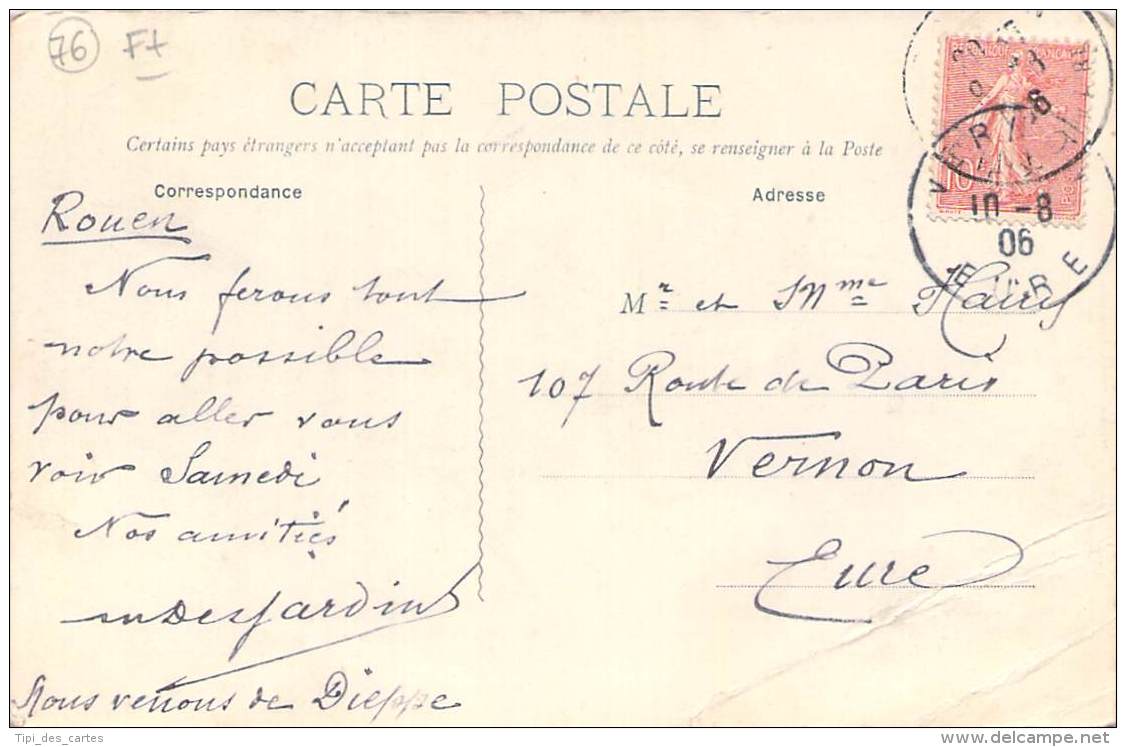 76 Ft
CARTE POSTALE
Certains pays étrangers n'acceptant pas la correspondance de ce côté, se renseigner à la Poste
Correspondance
Rouen
Nous ferons tout
notre possible
pour aller vous
voir Samedi
Nos amitiés
Desjardins
Nous venons de Dieppe
Adresse
Mr et Mme
107 Route de Paris
Vernon
Eure
REPUBLIQUE FRANCAISE
10
VER
10 - 8
06
EURE
Tipi_des_cartes
www.delcampe.net